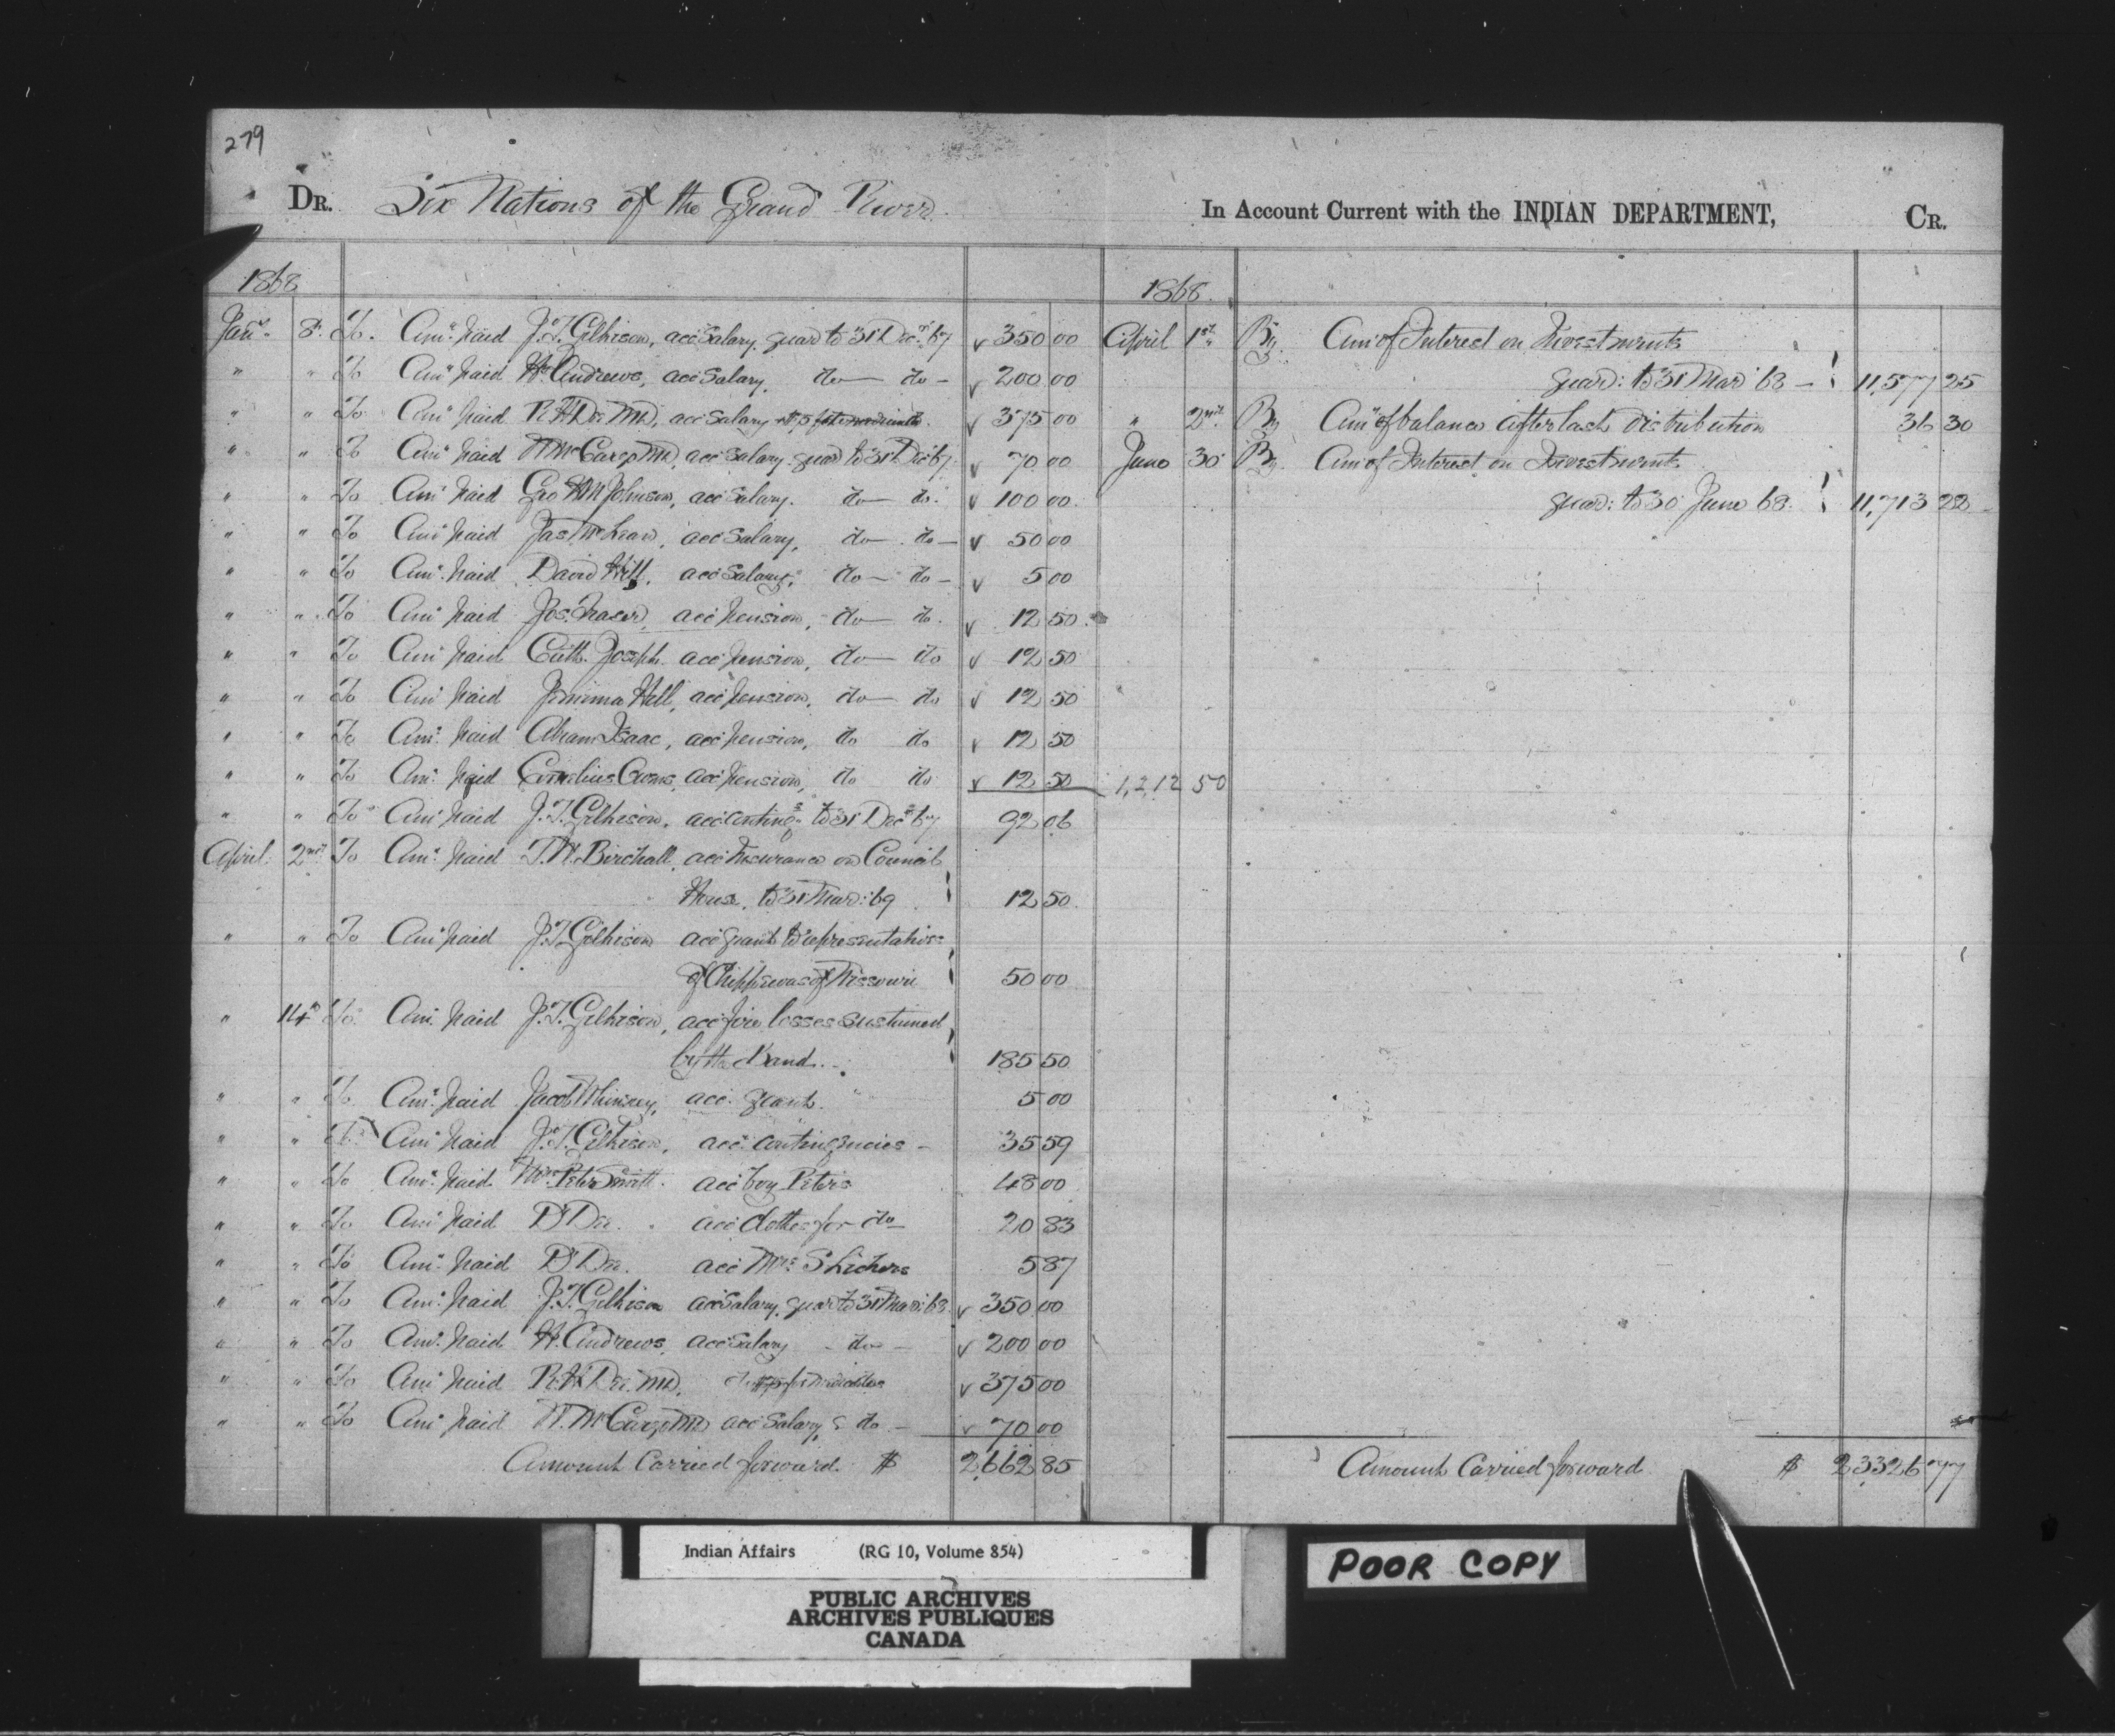 279
DR. Six Nations of the Grand River In Account Current with the INDIAN DEPARTMENT, CR.
1868
Jany 8 To Amt paid J.T. Gilkison, acc Salary, quar to 31 Dec 67 350 00
" " To Amt paid H. Andrews, acc Salary, do do 200 00
" " To Amt paid R.H. Dee MD, acc Salary 375 00
" " To Amt paid W McCargo MD, acc Salary quar to 31 Dec 67 70 00
" " To Amt paid Geo H M Johnson, acc Salary. do do. 100 00
" " To Amt paid Jas McLean, acc Salary, do do 50 00
" " To Amt paid David Hill, acc Salary, do do 5 00
" " To Amt paid Jos. Fraser, acc pension, do do. 12 50
" " To Amt paid Cath. Joseph acc pension, do do 12 50
" " To Amt paid Jemima Hill, acc pension, do do 12 50
" " To Amt paid Abram Isaac, acc pension, do do 12 50
" " To Amt paid Cornelius acc pension, do do 12 50 1,212 50
" " To Amt paid J.T. Gilkison, acc conting to 31 Dec 67 92 06
April 2nd To Amt paid T.W. Birchall, acc Insurance on Council
House, to 31 Mar: 69 12 50
" " To Amt paid J.T. Gilkison acc grant to representative
of Chippewas of 50 00
" 14 To Amt paid J.T. Gilkison, acc fire losses sustained
by the Band. 185 50
" " To Amt paid Jacob acc. grant. 5 00
" " To Amt paid J.T. Gilkison, acc. contingencies 35 59
" " To Amt paid Peter Smith. acc boy Peters 48 00
" " To Amt paid Dr Dee. acc clothes for do 20 83
" " To Amt paid Dr Dee. acc Mrs 5 87
" " To Amt paid J.T. Gilkison acc Salary, quar to 31 Mar: 68 350 00
" " To Amt paid H. Andrews, acc Salary do 200 00
" " To Amt paid R.H. Dee. MD, 375 00
" " To Amt paid W. McCargo MD acc Salary, do 70 00
Amount Carried forward. $ 2,662 85
1868.
April 1st By Amt of Interest on Investments
quar: to 31 Mar 68 11,577 25
" 2nd By Amt of balance after last distribution 36 30
June 30 By Amt of Interest on Investments
quar: to 30 June 68. 11,713 22
Amount Carried forward $ 23326 77
Indian Affairs (RG 10, Volume 854)
PUBLIC ARCHIVES
ARCHIVES PUBLIQUES
CANADA
POOR COPY